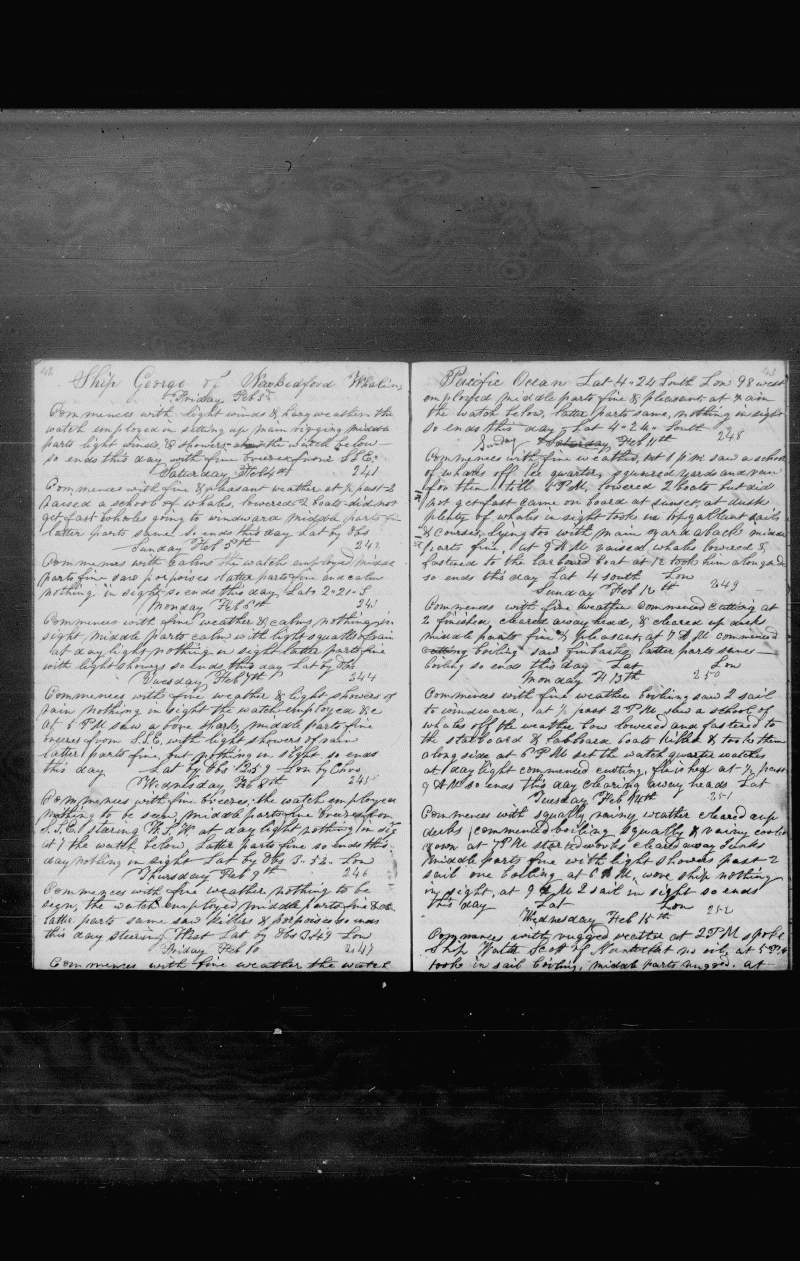 42
Ship George of New Bedford Whaling
Friday Feb 3d
Commences with light winds & hazy weather the
watch employed in setting up main rigging middle
parts light winds & showers the watch below
so ends this day with fine breeze from S.S.E.
Saturday Feb 4th 241
Commences with fine & pleasant weather at ½ past 2
raised a school of whales, lowered 2 boats did not
get fast whales going to windward middle parts fine
latter parts same so ends this day Lat by Obs
Sunday Feb 5th 242
Commences with calms the watch employed middle
parts fine saw porpoises latter parts fine and calm
nothing in sight so ends this day Lat 2"21"S
Monday Feb 6th 243
Commences with fine weather & calms nothing in
sight, middle parts calm with light squalls of rain
at day light nothing in sight latter parts fine
with light showers so ends this day Lat by Obs
Tuesday Feb 7th 244
Commences with fine weather & light showers of
rain nothing in sight the watch employed &c
at 5 PM saw a bone shark, middle parts fine
breeze from S.S.E. with light showers of rain
latter parts fine but nothing in sight so ends
this day Lat by Obs 2.59 Lon by Chro
Wednesday Feb 8th 245
Commences with fine breezes, the watch employed
nothing to be seen, middle parts fine breeze from
S.S.E. staring W.S.W. at day light nothing in sig
at 7 the watch below, latter parts fine so ends this
day nothing in sight Lat by Obs 3.52 Lon
Thursday Feb 9th 246
Commences with fine weather nothing to be
seen, the watch employed, middle parts fine &c
latter parts same saw killers & porpoises so ends
this day steering West Lat by Obs 3.49 Lon
Friday Feb 10 247
Commences with fine weather the watch
43
Pacific Ocean Lat 4"24 South Lon 98 west
employed middle parts fine & pleasant at 7 am
the watch below, latter parts same, nothing in sight
so ends this day Lat 4"24" South
Saturday Feb 11th 248
Commences with fine weather, at 1 pm saw a school
of whales off lee quarter, squared yards and run
for them till 4 PM, lowered 2 boats but did
not get fast came on board at sunset, at dusk
plenty of whales in sight took in topgallant sails
& courses, lying too with main yard aback middle
parts fine, at 9 AM raised whales lowered &
fastened to the larboard boat at 12 took him alongside
so ends this day Lat 4 south Lon
Sunday Feb 12th 249
Commences with fine weather commenced cutting at
2 finished, cleared away head, & cleared up decks
middle parts fine & pleasant, at 7 AM commenced
cutting boiling saw finbacks, latter parts same
boiling so ends this day Lat Lon
Monday F 13th 250
Commences with fine weather boiling saw 2 sail
to windward, at ½ past 2 PM saw a school of
whales off the weather bow lowered and fastened to
the starboard & larboard boats killed & took them
along side at 6 PM set the watch quarter watches
at day light commenced cutting, finished at ½ past
9 AM so ends this day clearing away heads Lat
Tuesday Feb 14th 251
Commences with squally rainy weather cleared up
decks commenced boiling squally & rainy cooled
down at 7 PM started works cleared away decks
middle parts fine with light showers past 2
sail one boiling at 6 AM, wore ship nothing
in sight, at 9 AM 2 sail in sight so ends
this day Lat Lon
Wednesday Feb 15th 252
Commences with rugged weather at 2 PM spoke
Ship Walter Scott of Nantucket no oil, at 5 PM
took in sail boiling, middle parts rugged, at